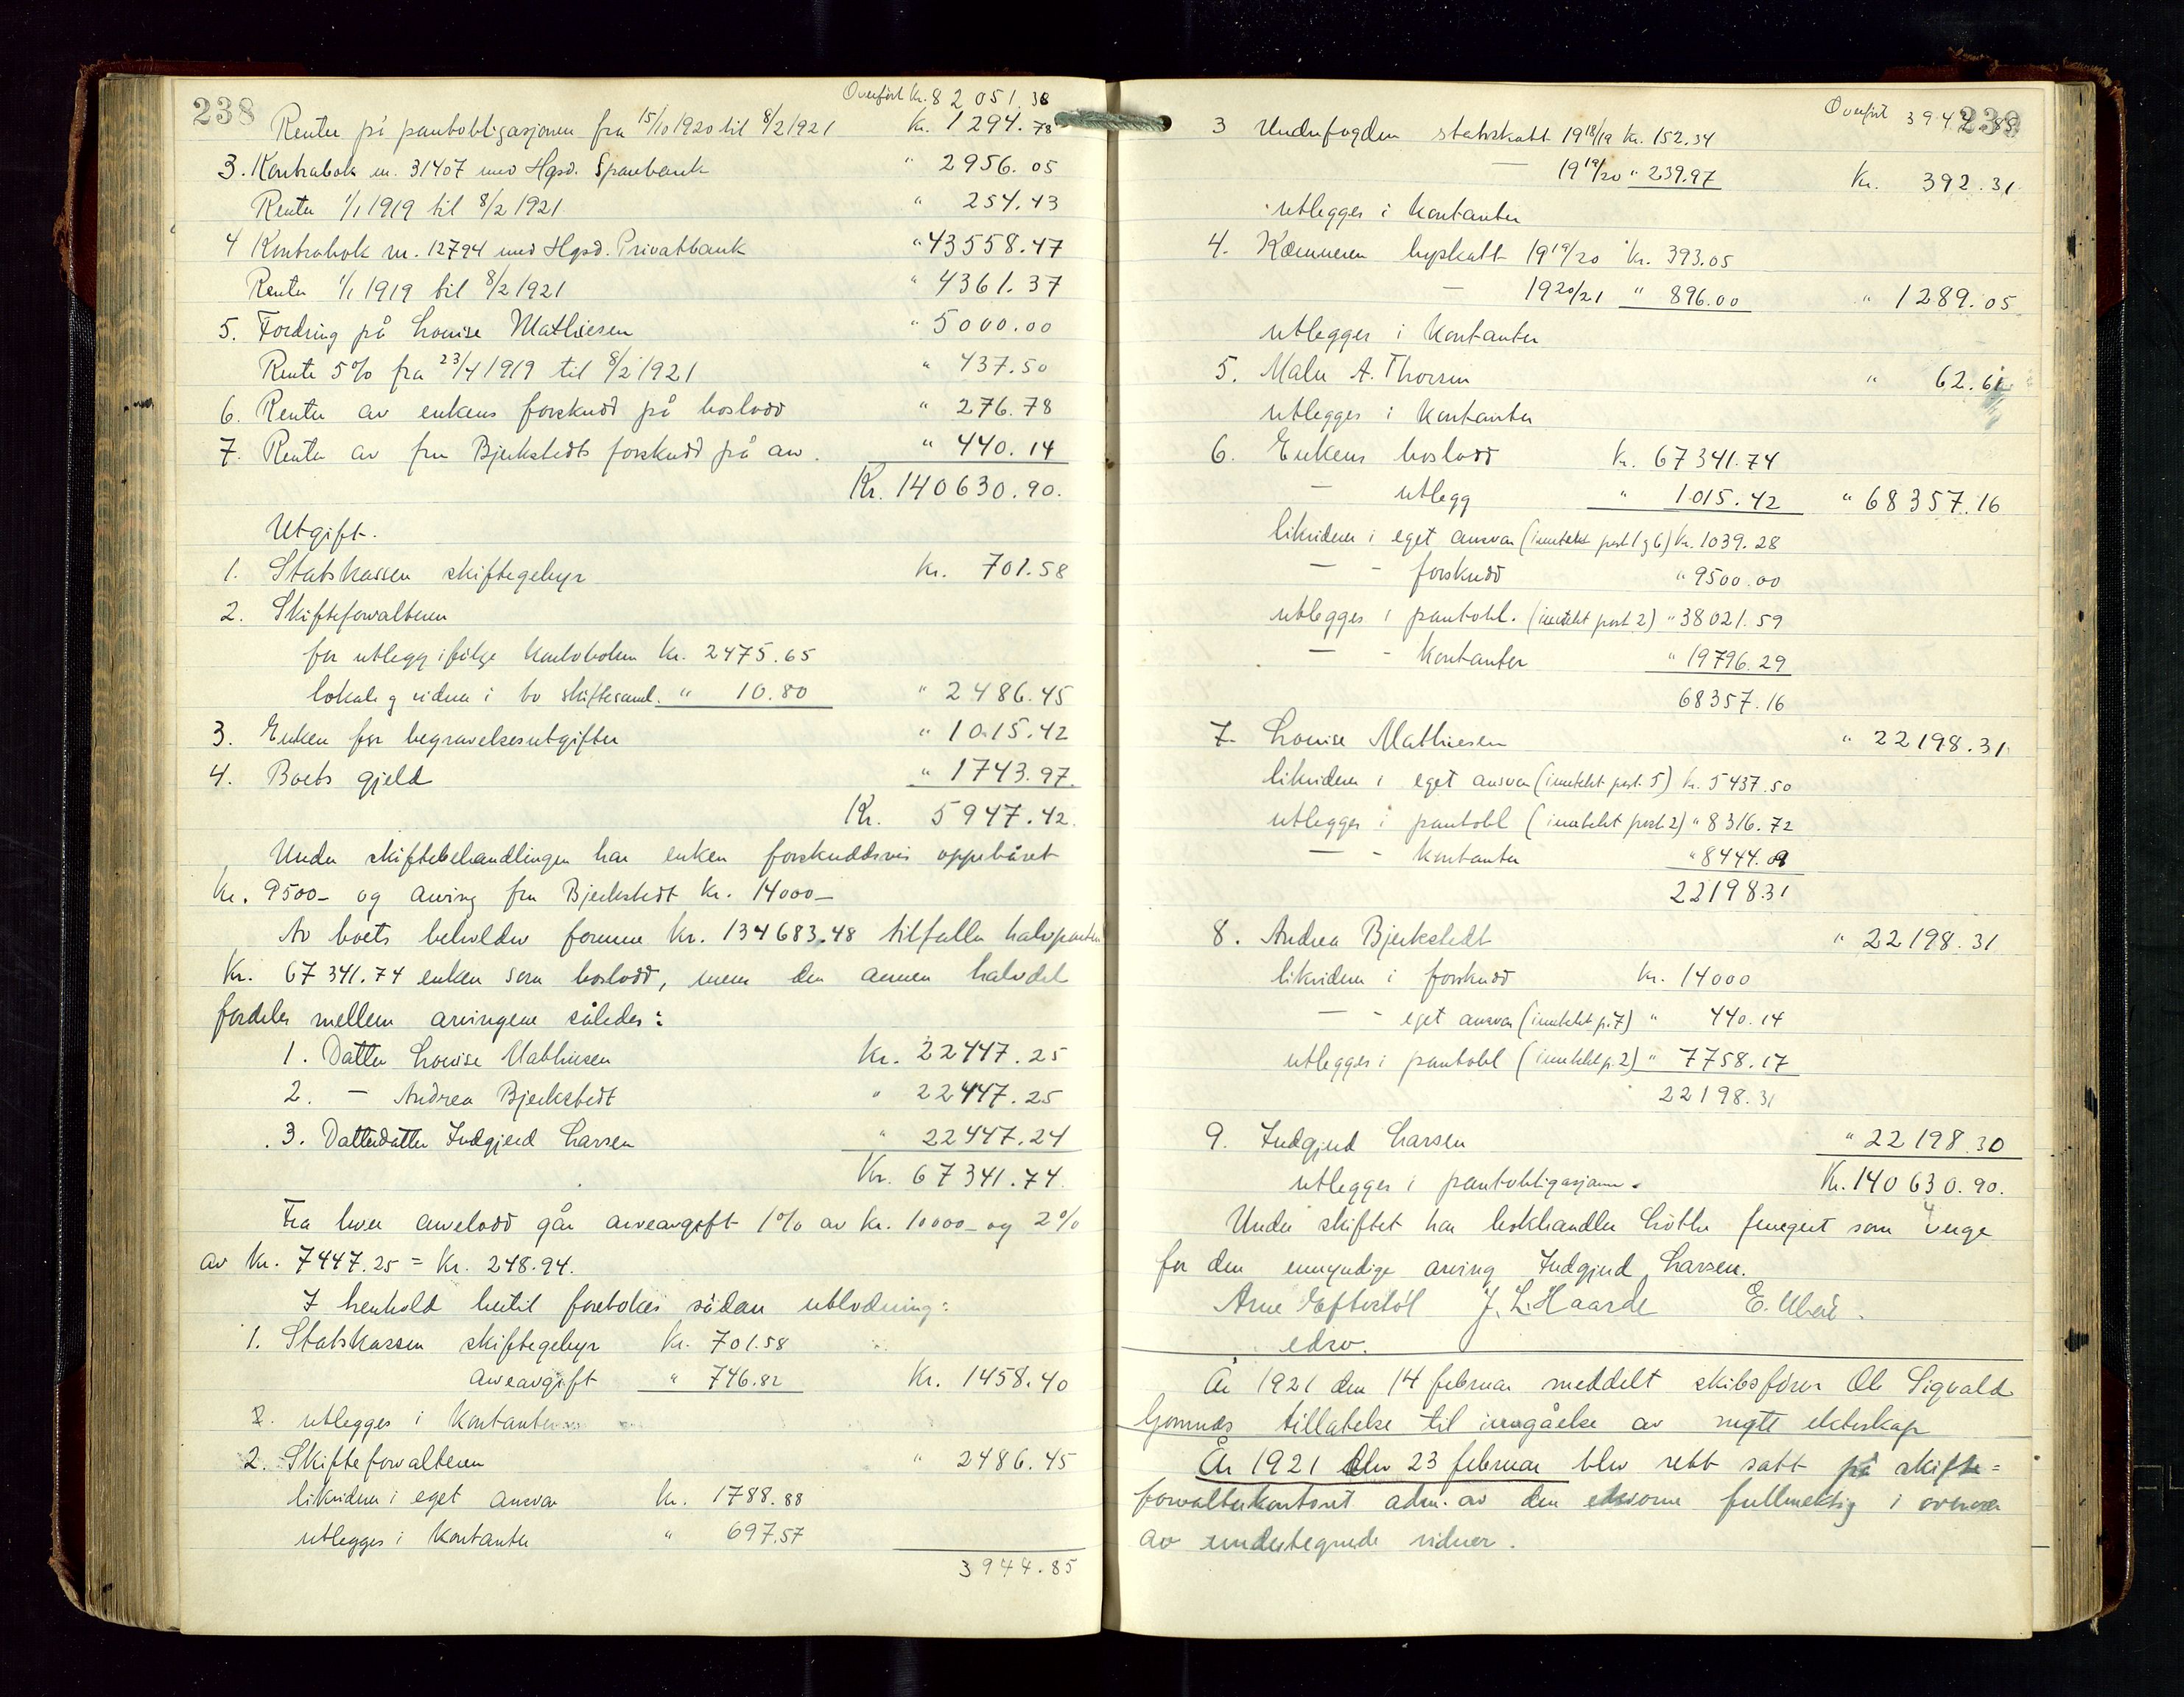 238
Overført kr. 82 051.38
Renter på pantobligasjonen fra 15/10 1920 til 8/2 1921 Kr. 1294.78
3. Kontrabok nr. 31407 med Hgsd. Sparebank " 2956.05
Renter 1/1 1919 til 8/2 1921 " 254.43
4 Kontrabok nr. 12794 med Hgsd. Privatbank " 43558.47
Renter 1/1 1919 til 8/2 1921 " 4361.37
5. Fordring på Louise Mathiesen " 5000.00
Rente 5% fra 23/4 1919 til 8/2 1921 " 437.50
6. Renter av enkens forskudd på boslodd " 276.78
7. Renter av fru Bjerkstedts forskudd på arv. " 440.14
Kr. 140630.90.
Utgift.
1. Statskassen skiftegebyr Kr. 701.58
2. Skifteforvalteren
for utlegg ifølge kontoboken kr. 2475.65
lokale g vidner i bo skiftesaml. " 10.80 " 2486.45
3. Enken for begravelsesutgifter " 1015.42
4. Boets gjeld " 1743.97
Kr. 5947.42.
Under skiftebehandlingen har enken forskuddsvis oppebåret
kr. 9500- og arving fru Bjerkstedt kr. 14000-
Av boets beholdne formue kr. 134683.48 tilfaller halvparten
Kr. 67341.74 enken som boslodd, mens den annen halvdel
fordeles mellem arvingene således:
1. Datter Louise Mathiesen Kr. 22447.25
2. — Andrea Bjerkstedt " 22447.25
3. Datterdatter Indgjerd Larsen " 22447.24
Kr. 67341.74
Fra hver arvelodd går arveavgift 1% av kr. 10000- og 2%
av kr. 7447.25 = kr. 248.94.
I henhold hertil foretokes sådan utlodning:
1. Statskassen skiftegebyr kr. 701.58
arveavgift " 746.82 Kr. 1458.40
utlegges i kontanter
2. Skifteforvalteren " 2486.45
likvideres i eget ansvar kr. 1788.88
utlegges i kontanter " 697.57
3944.85
239
Overført 3944.85
3 Underfogden statsskatt 1918/19 kr. 152.34
— 1919/20 " 239.97 Kr. 392.31
utlegges i kontanter
4. Kæmneren byskatt 1919/20 kr. 393.05
— 1920/21 " 896.00 " 1289.05
utlegges i kontanter
5. Maler A. Thorsen " 62.61
utlegges i kontanter
6. Enkens boslodd kr. 67341.74
— utlegg " 1015.42 " 68357.16
likvideres i eget ansvar (inntekt post 1 g 6) kr. 1039.28
— - forskudd " 9500.00
utlegges i pantobl. (inntekt post 2) " 38021.59
— - kontanter " 19796.29
68357.16
7. Louise Mathiesen " 22198.31
likvideres i eget ansvar (inntekt post. 5) kr. 5437.50
utlegges i pantobl (inntekt post 2) " 8316.72
— - kontanter " 8444.09
22198.31
8. Andrea Bjerkstedt " 22198.31
likvideres i forskudd kr. 14000
— - eget ansvar (inntekt p. 7) " 440.14
utlegges i pantobl (inntekt p. 2) " 7758.17
22198.31
9. Indgjerd Larsen " 22198.30
utlegges i pantobligasjonen. Kr. 140630.90.
Under skiftet har bokhandler fungert som verge
for den umyndige arving Indgjerd Larsen.
Arne Eftestøl J. L. Haarde E.
edsv.
År 1921 den 14 februar meddelt skibsfører Ole Sigvald
Gomnæs tillatelse til inngåelse av nytt ekteskap
År 1921 den 23 februar blev rett satt på skifte=
forvalterkontoret adm. av den edsvorne fullmektig i overvær
av undertegnede vidner.